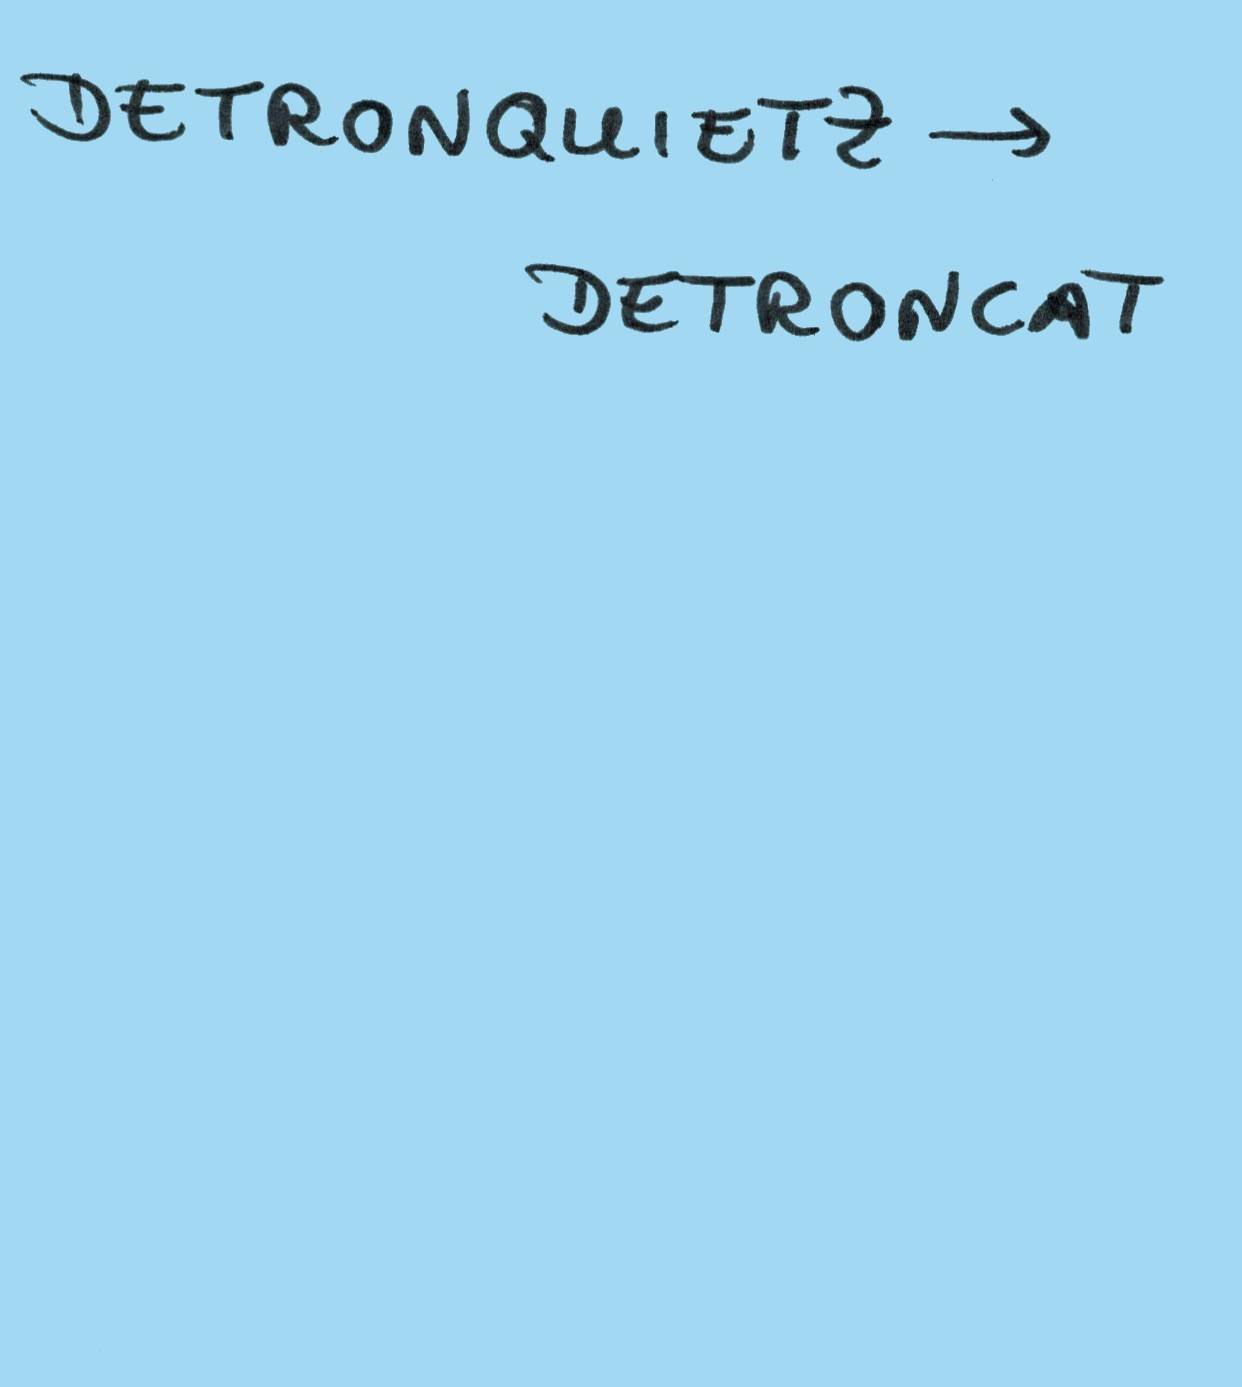 DETRONQUIETZ →
DETRONCAT